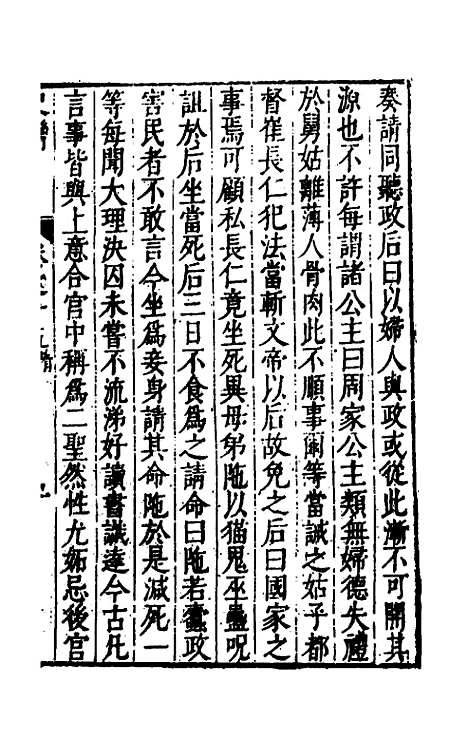 奏請同聽政后曰以婦人與政或從此漸不可開其
源也不許每謂諸公主曰周家公主類無婦德失禮
於舅姑離薄人骨肉此不順事爾等當誡之姑子都
督崔長仁犯法當斬文帝以后故免之后曰國家之
事焉可顧私長仁竟坐死異母弟陁以猫鬼巫蠱呪
詛於后坐當死后三日不食為之請命曰陁若蠹政
害民者不敢言今坐為妾身請其命陁於是減死一
等每聞大理決囚未嘗不流涕好讀書識達今古凡
言事皆與上意合宫中稱為二聖然性尤妬忌後宫